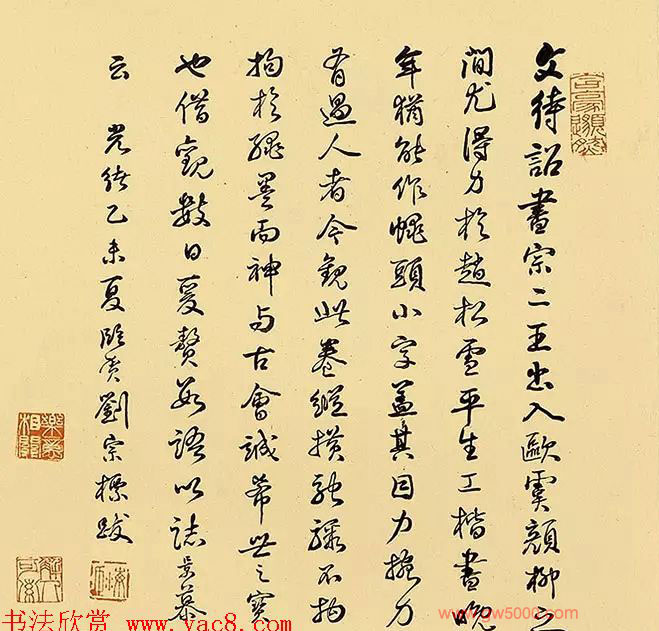 文待詔書宗二王出入歐虞顏柳之
間尤得力於趙松雪平生工楷書晚
年猶能作蠅頭小字蓋其目力捥力
有過人者今觀此卷縱橫馳驟不拘
拘於繩墨而神與古會誠希世之寶
也借觀數日爰贅數語以誌景慕
云 光緒乙未夏臨賀劉宗標跋
书法欣赏 www.yac8.com
www.gw5000.com